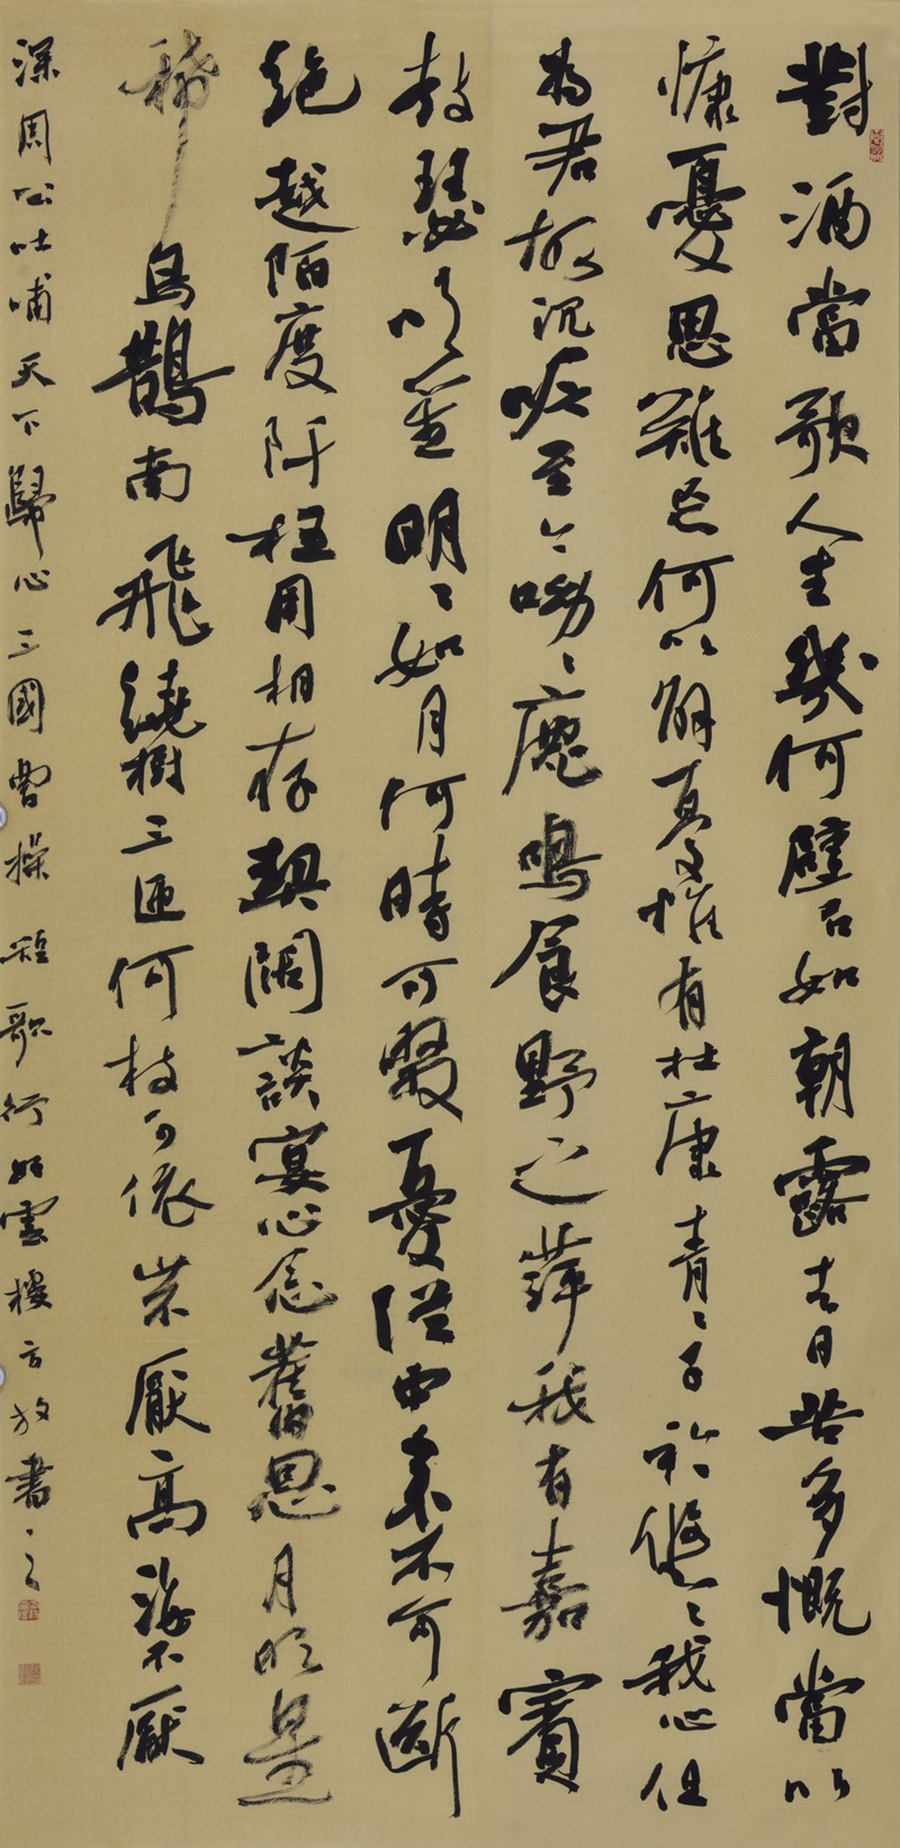 對酒當歌人生幾何譬如朝露去日苦多慨當以
慷憂思難忘何以解憂惟有杜康青々子衿悠々我心但
為君故沉吟至今呦々鹿鳴食野之萍我有嘉賓
鼓瑟吹笙明々如月何時可掇憂從中來不可斷
絕越陌度阡枉用相存契闊談宴心念舊恩月明星
稀烏鵲南飛繞樹三匝何枝可依山不厭高海不厭
深周公吐哺天下歸心三國曹操短歌行雲樓方放書